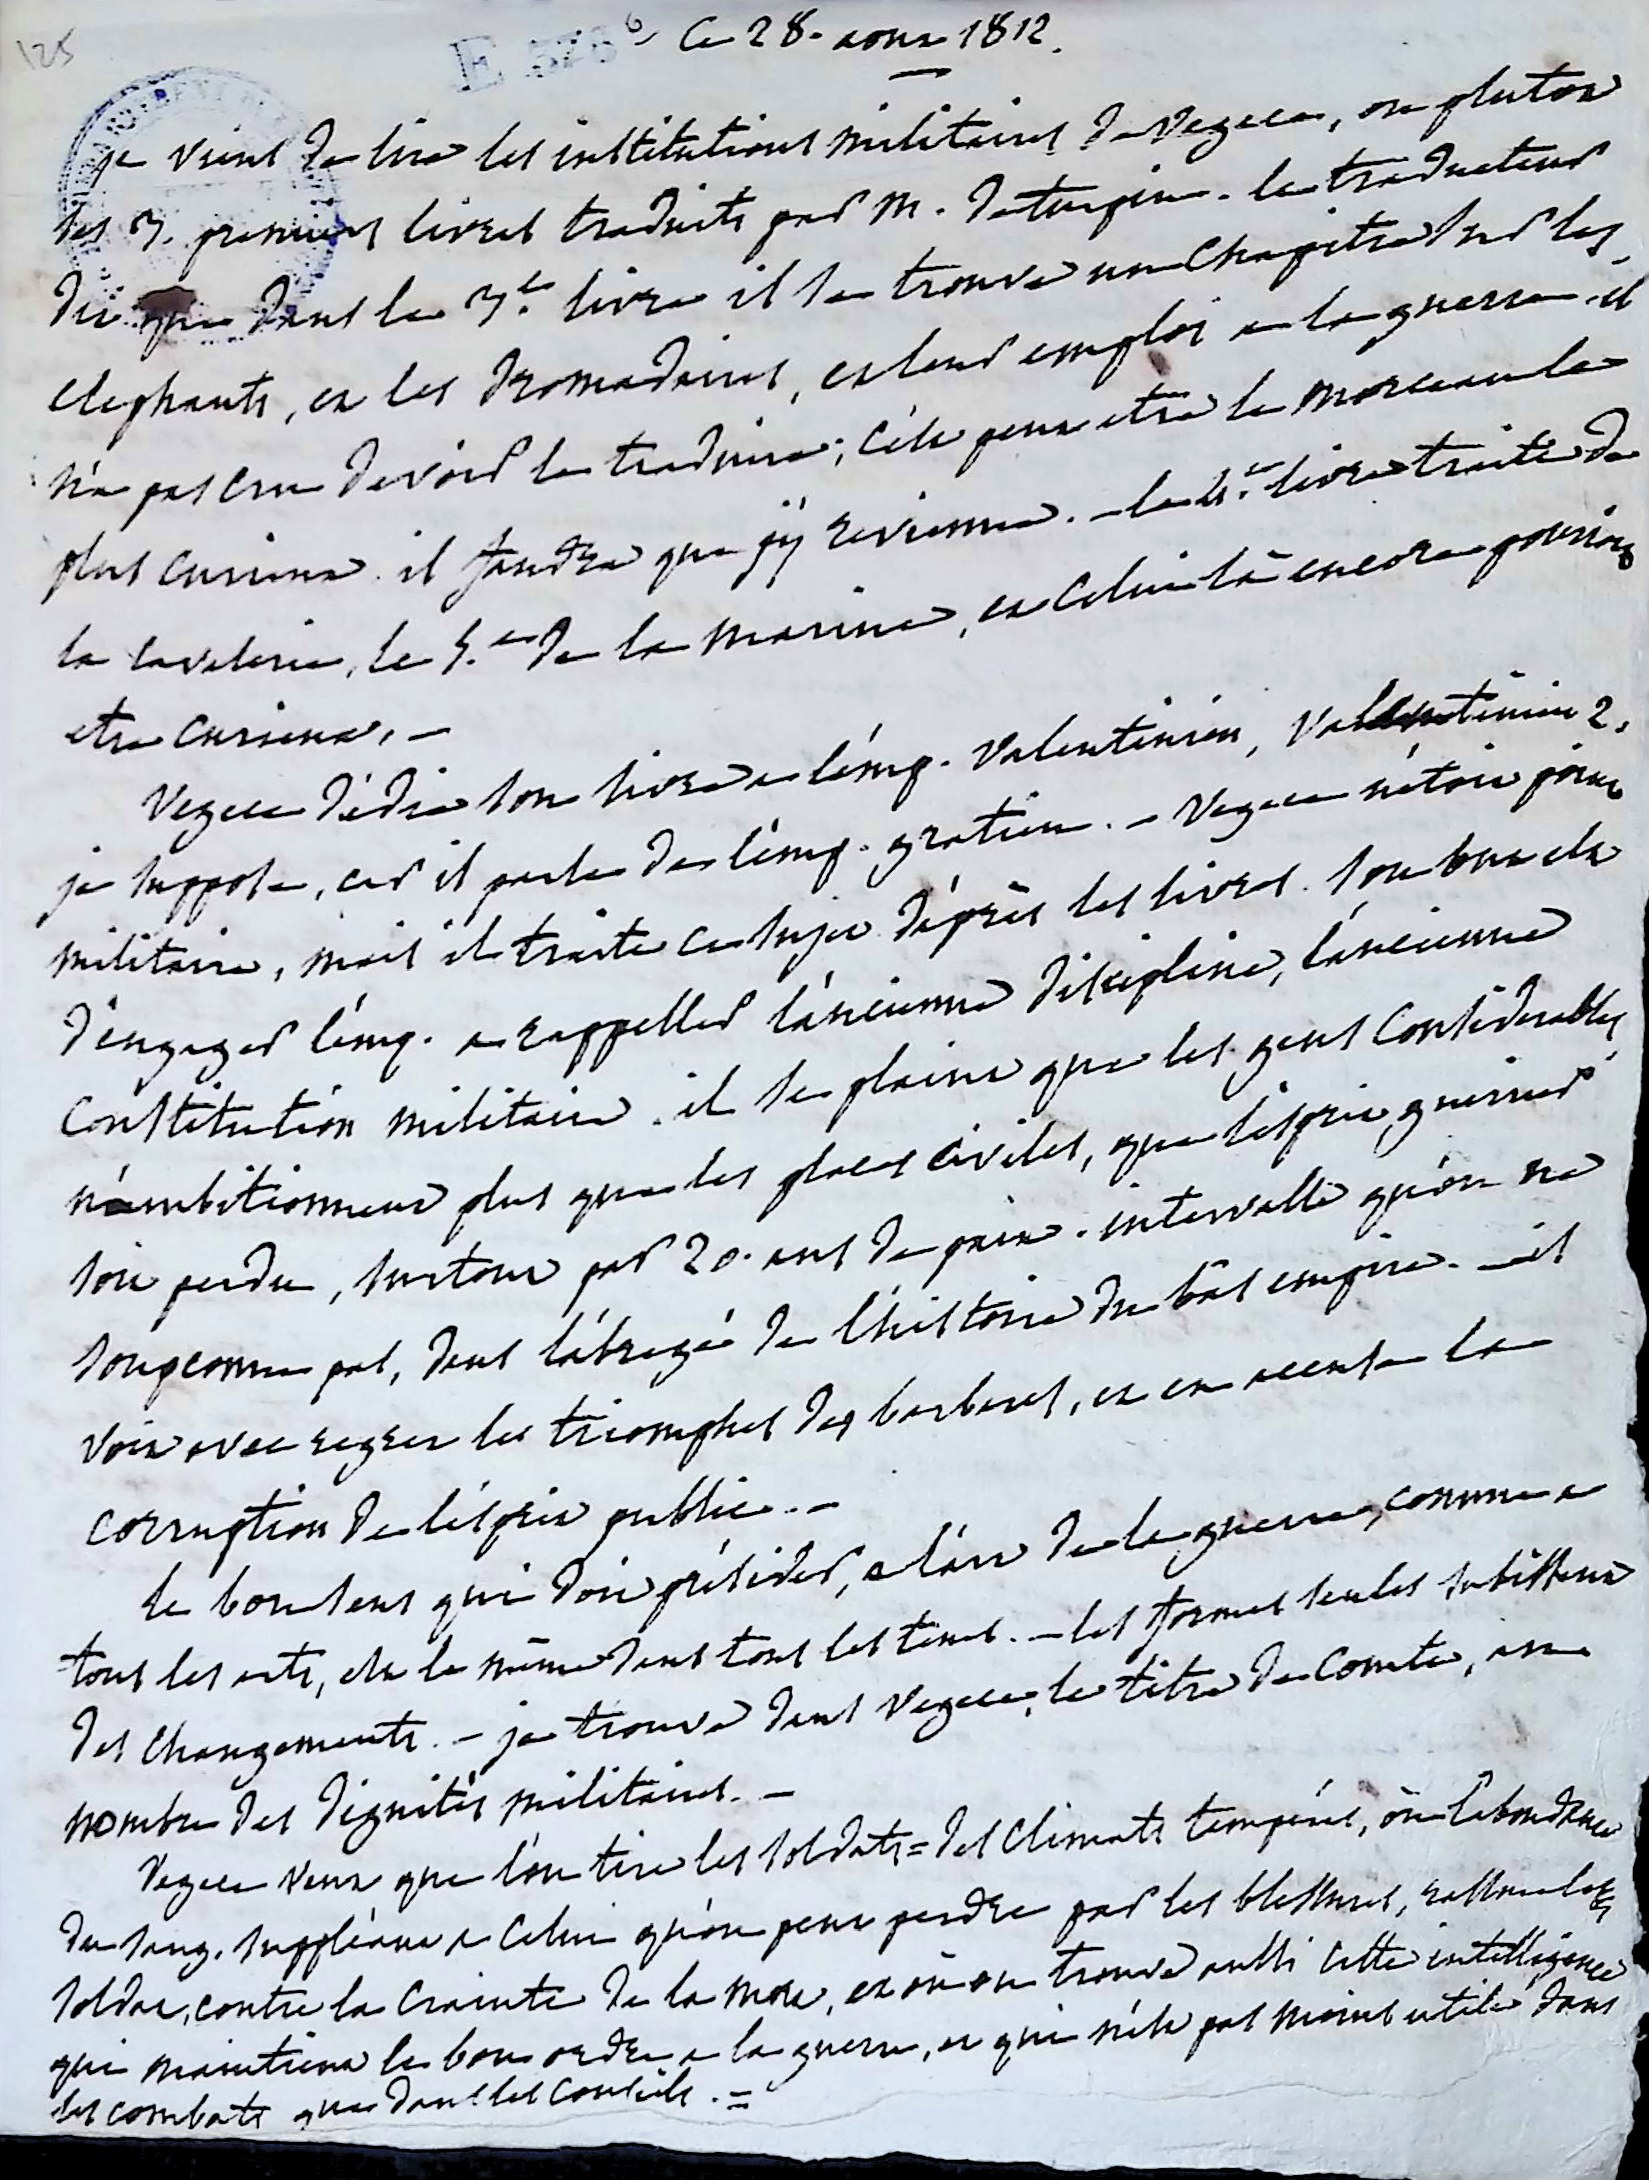 125
Ce 28. aout 1812.
je viens de lire les institutions militaires de Vegece, ou plutot
les 3. premiers livres traduits par M. de turpin. le traducteur
dit que dans le 3.e livre il se trouve un Chapitre sur les
elephants, et les dromadaires, et leur emploi a la guerre. il
n'a pas cru devoir le traduire; c'est peut etre le morceau le
plus curieux. il faudra que j'y revienne. - le 4.e livre traite de
la cavalerie, le 5.e de la marine, et celui là encore pourroit
etre curieux. -
Vegece dédie son livre a l'emp. Valentinien, Valentinien 2.
je suppose, car il parle de l'emp. gratien. - Vegece n'étoit point
militaire, mais il traite ce sujet d'après les livres. son but est
d'engager l'emp. a rappeller l'ancienne discipline, l'ancienne
constitution militaire. il se plaint que les gens considerables
n'ambitionnent plus que les places civiles, que l'esprit guerrier
soit perdu, surtout par 20. ans de paix. intervalle qu'on ne
soupconne pas, dans l'abregé de l'histoire du bas empire. - il
voit avec regret les triomphes des barbares, et en accuse la
corruption de l'esprit public. -
le bon sens qui doit présider, a l'art de la guerre, comme a
tous les arts, est le même dans tous les tems. - les formes seules subissent
des changements. - je trouve dans Vegece, le titre de Comte, au
nombre des dignités militaires. -
Vegece veut que l'on tire les soldats = des climats tempérés, où l'abondance
du sang, suppléant a celui qu'on peut perdre par les blessures, rassure le
soldat, contre la crainte de la mort, et où on trouve aussi cette intelligence
qui maintient le bon ordre a la guerre, et qui n'est pas moins utile dans
les combats que dans les conseils. =